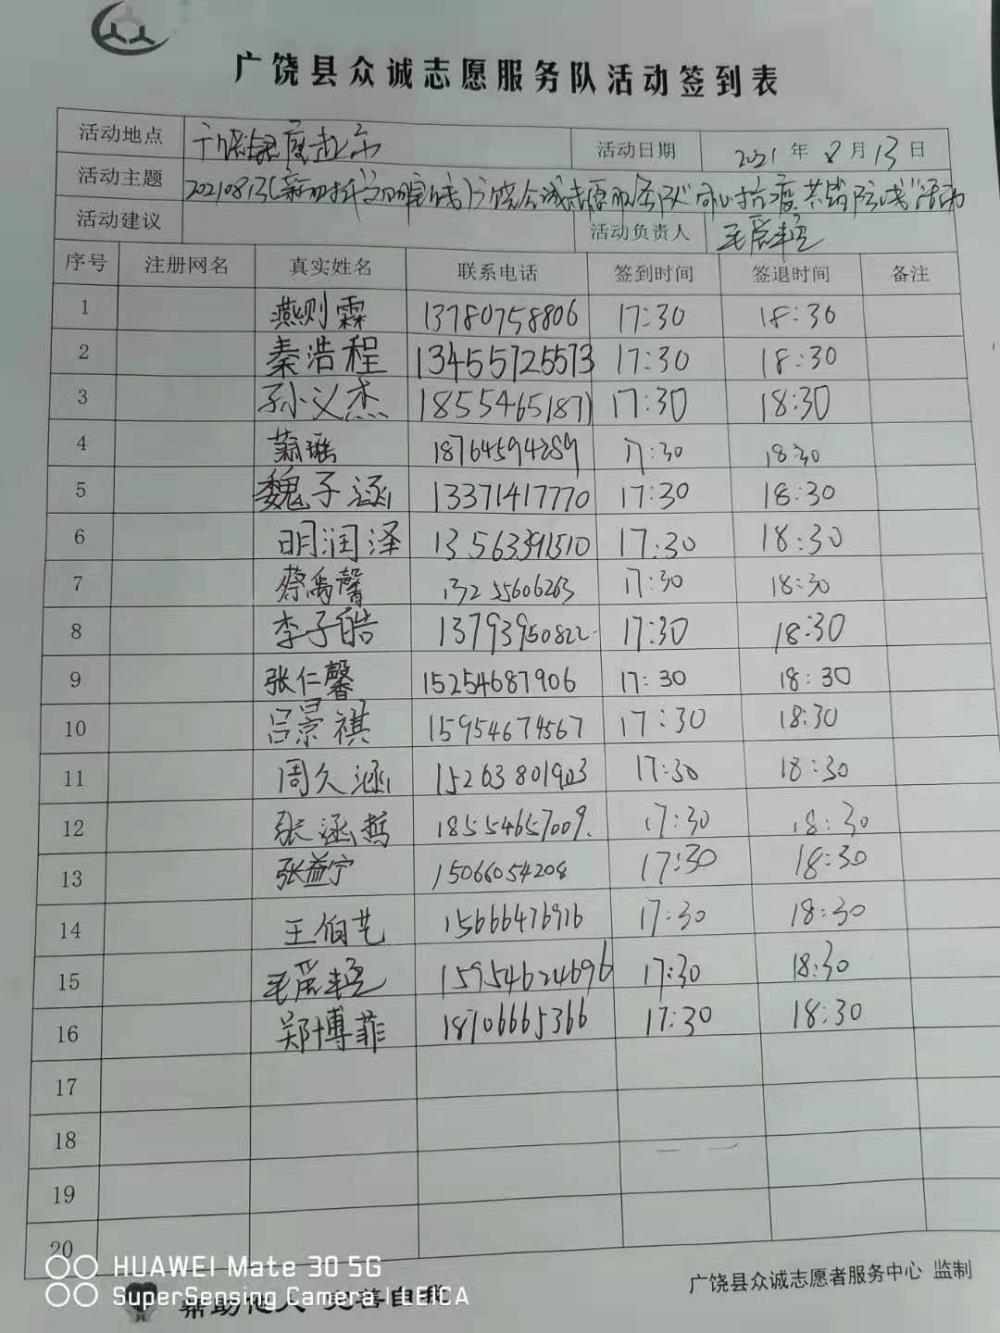 广饶县众诚志愿服务队活动签到表
活动地点 活动日期 2021 年 8 月 13 日
活动主题 20210813(新时代文明实践)广饶众诚志愿服务队"同心抗疫 共筑防线"活动
活动建议 活动负责人
序号 注册网名 真实姓名 联系电话 签到时间 签退时间 备注
1 燕则霖 13780758806 17:30 18:30
2 秦浩程 13455725573 17:30 18:30
3 孙义杰 18554651871 17:30 18:30
4 18764594289 17:30 18:30
5 魏子涵 13371417770 17:30 18:30
6 明润泽 13563391510 17:30 18:30
7 蔡禹馨 13255606263 17:30 18:30
8 李子皓 13793950822 17:30 18:30
9 张仁馨 15254687906 17:30 18:30
10 吕景祺 15954674567 17:30 18:30
11 周久涵 15263801903 17:30 18:30
12 张涵哲 18554657009. 17:30 18:30
13 张益宁 15066054208 17:30 18:30
14 王伯艺 15666476916 17:30 18:30
15 15954624696 17:30 18:30
16 郑博菲 18706665366 17:30 18:30
17
18
19
20
HUAWEI Mate 30 5G
SuperSensing Camera | LEICA
帮助他人 完善自我
广饶县众诚志愿者服务中心 监制